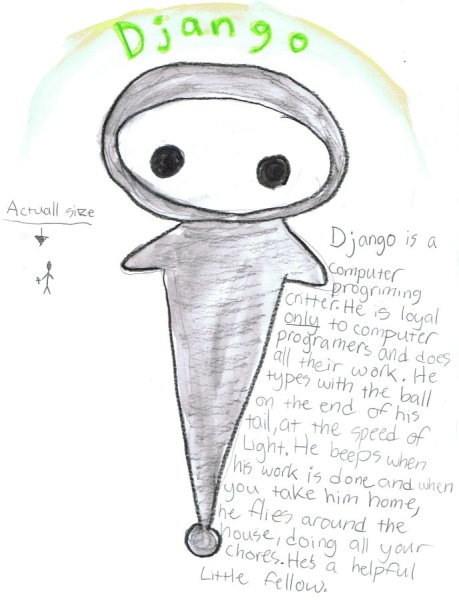 Django
Actuall size
Django is a
computer
progriming
critter. He is loyal
only to computer
programers and does
all their work. He
types with the ball
on the end of his
tail, at the speed of
Light. He beeps when
his work is done and when
you take him home,
he flies around the
house, doing all your
chores. He's a helpful
Little fellow.